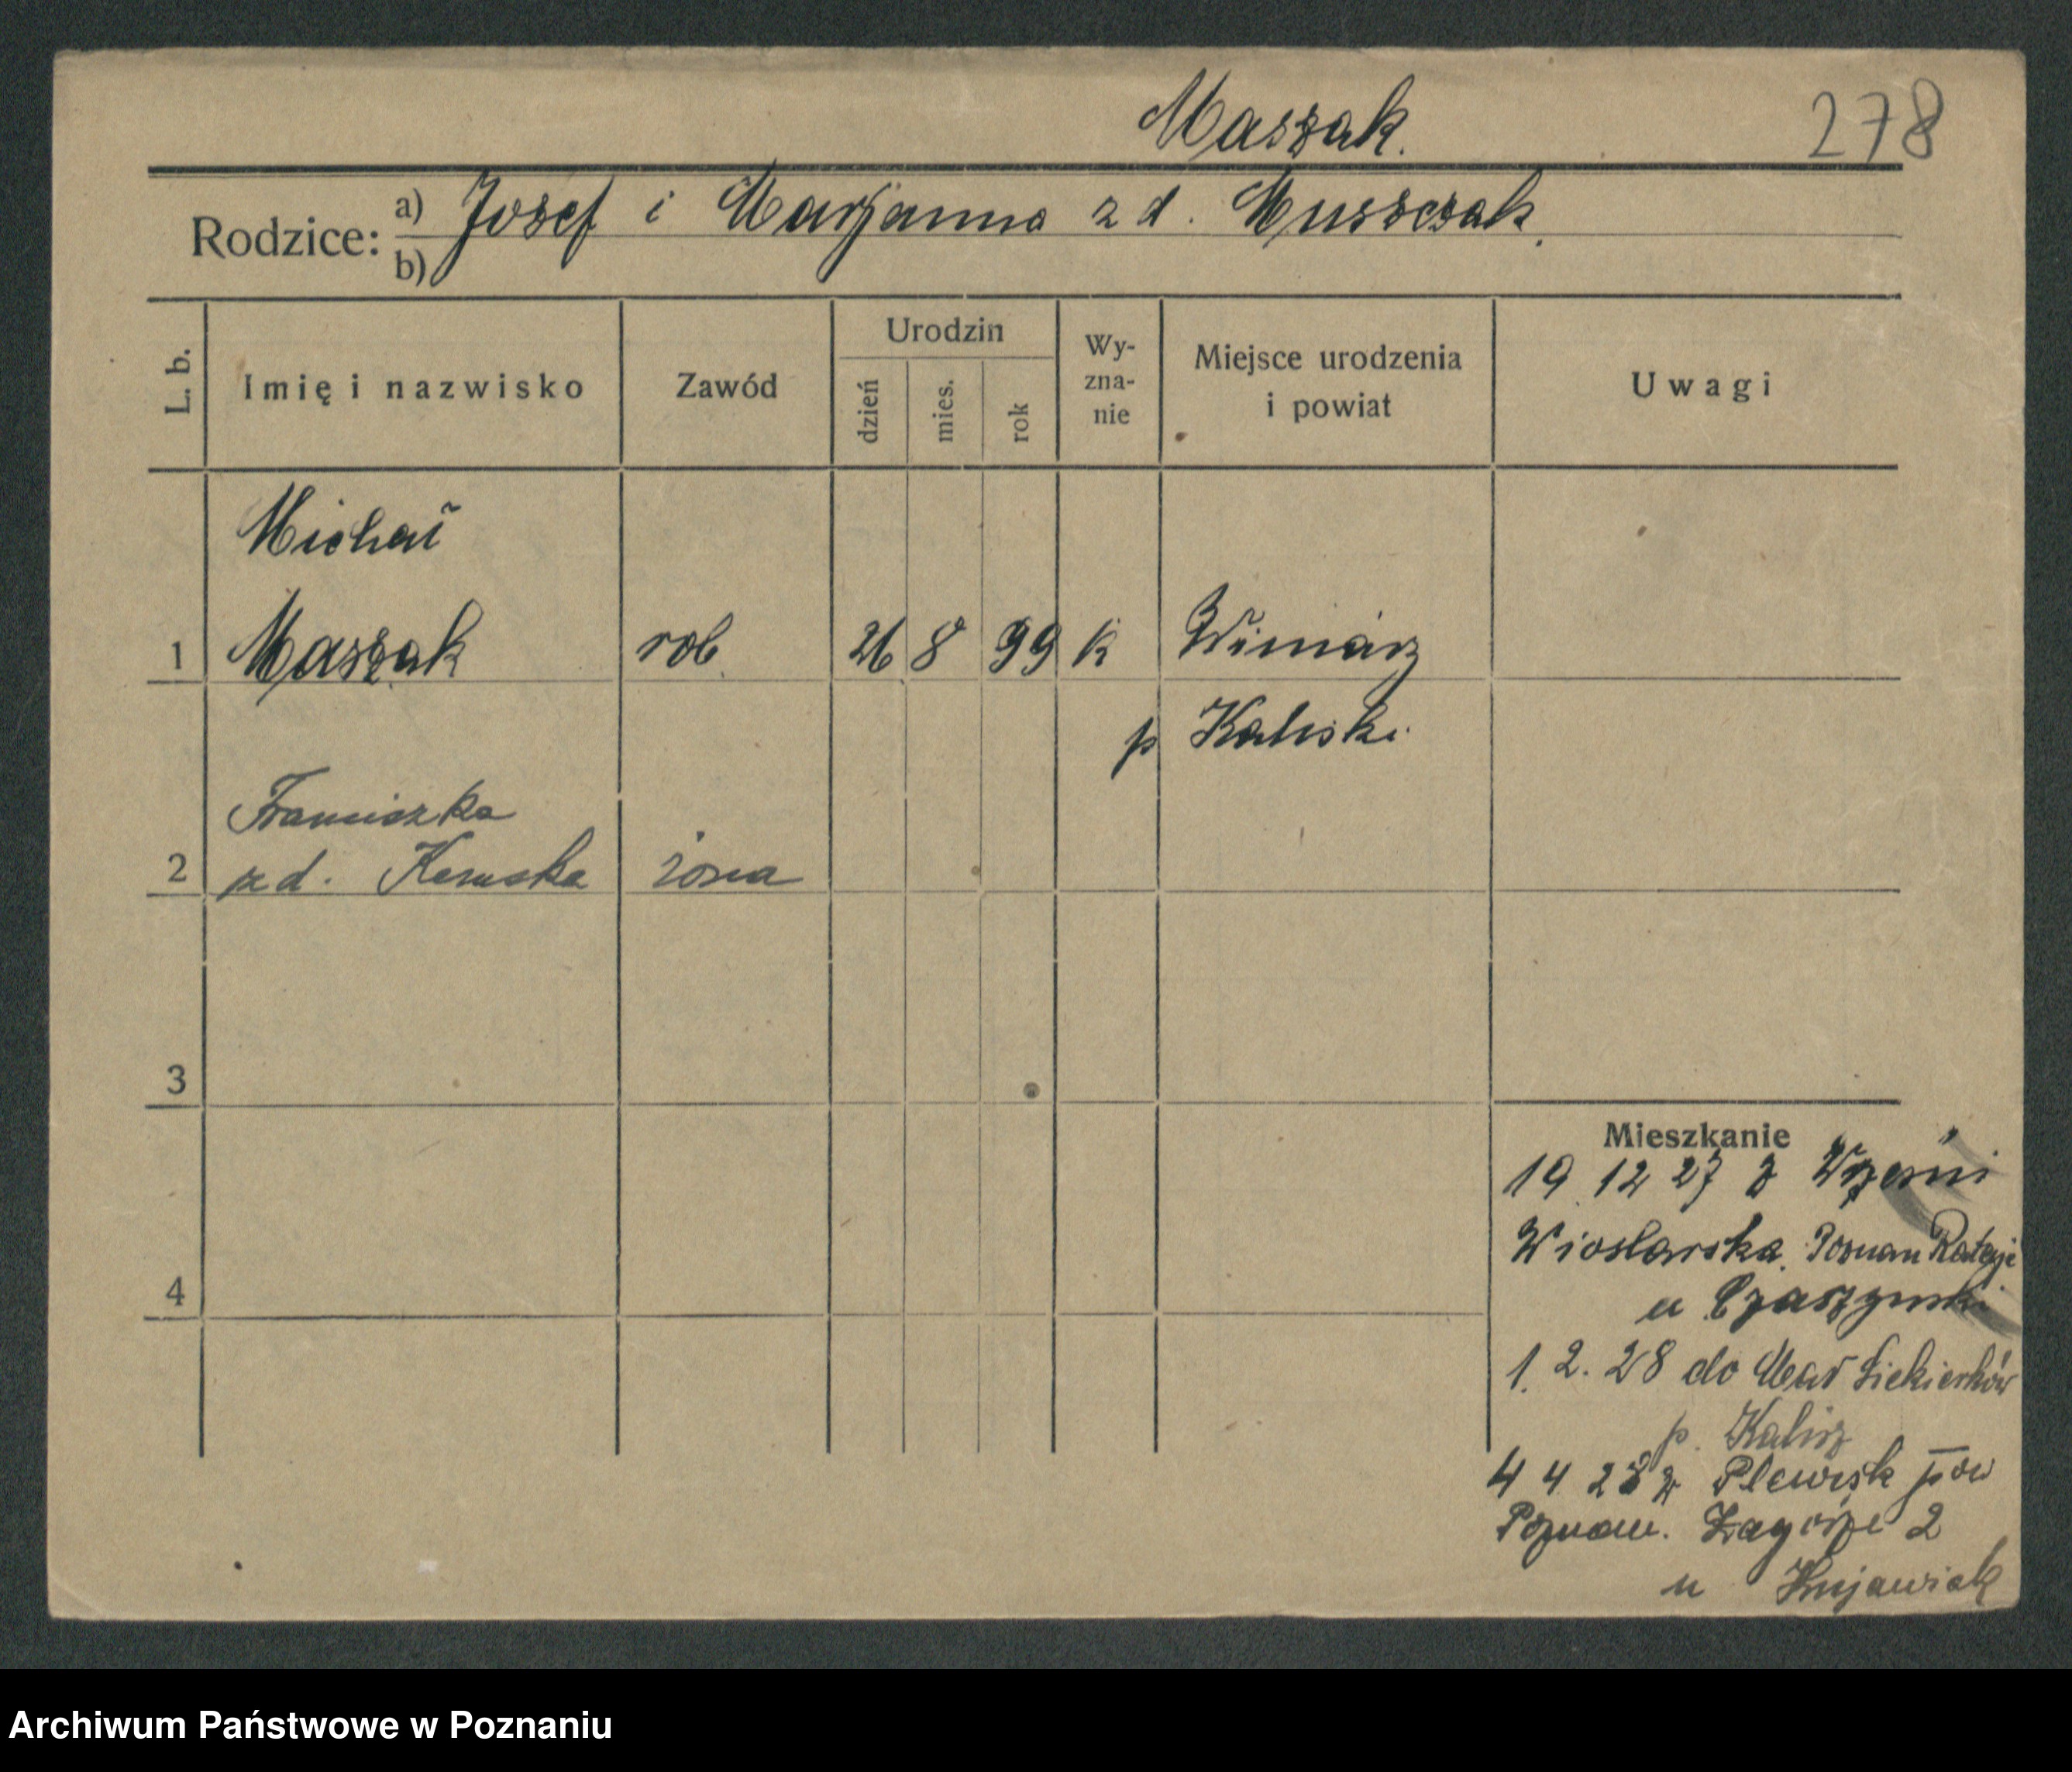 Maszak.
278
Rodzice: a) Jozef i Marjanna z d. Muszczak.
b)
L. b.
Imię i nazwisko
Zawód
Urodzin
dzień
mies.
rok
Wy-
zna-
nie
Miejsce urodzenia
i powiat
Uwagi
Michał
1 Maszak rob. 26 8 99 k Winiarz
p Kaliski.
Franciszka
2 z d. żona
3
4
Mieszkanie
19. 12 27 z Wrześni
Wioslarska. Poznan Rataje
u
1. 2. 28 do Siekierków
p. Kalisz
4 4 28 z Plewisk pow
Poznan. Zagórze 2
u Kujawiak
Archiwum Państwowe w Poznaniu